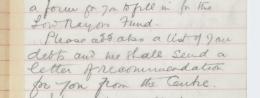 a form for you to fill in for the
Low Rayon Fund.
Please add also a list of your
debts and we shall send a
letter of recommendation
for you from the Centre.